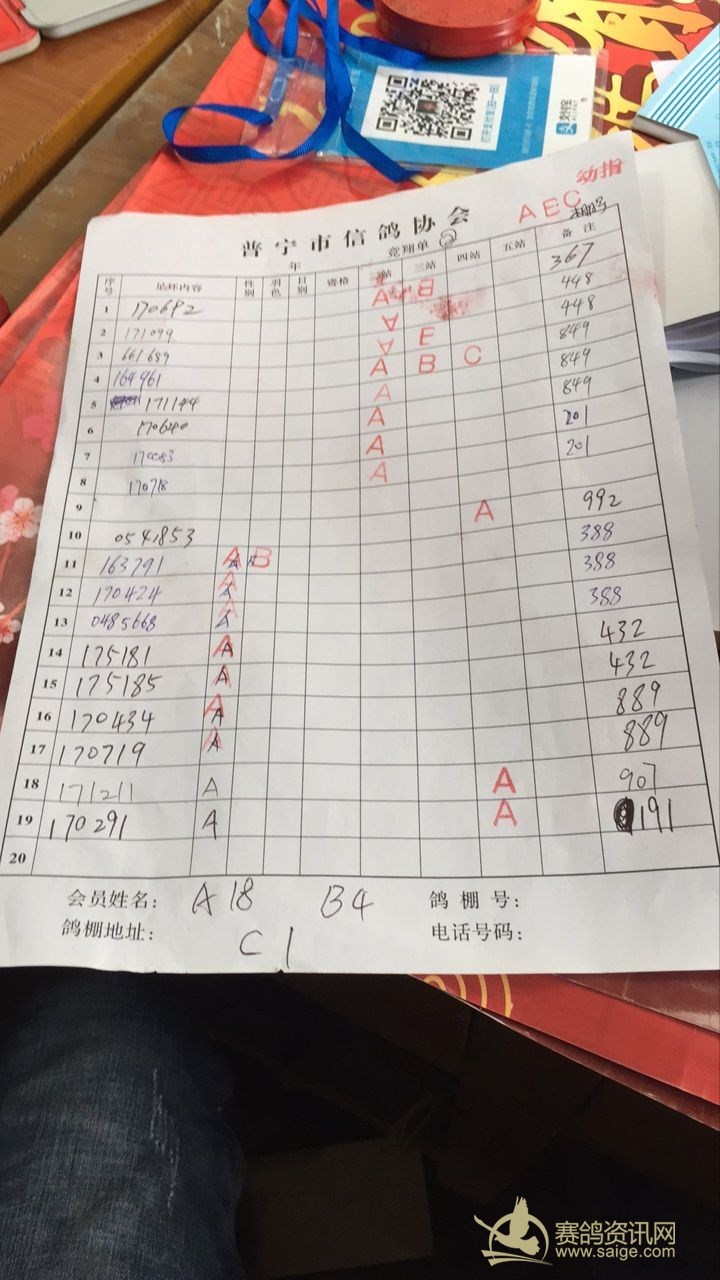 支付宝
打开支付宝[扫一扫]
幼指
A E C
普宁市信鸽协会
年 竞翔单 ②
序号 足环内容 性别 羽色 日别 资格 三站 四站 五站 备注
1 170692 A B 367
2 171099 A 448
3 661689 A E 448
4 164961 A B C 849
5 171144 A 849
6 170640 A 849
7 170083 A 201
8 170718 A 201
9
10 0541853 A 992
11 163791 A B 388
12 170424 A 388
13 0485668 A 388
14 175181 A 432
15 175185 A 432
16 170434 A 889
17 170719 A 889
18 171211 A A 907
19 170291 A A 191
20
会员姓名: A 18 B4 鸽棚号:
鸽棚地址: C 1 电话号码:
赛鸽资讯网
www.saige.com